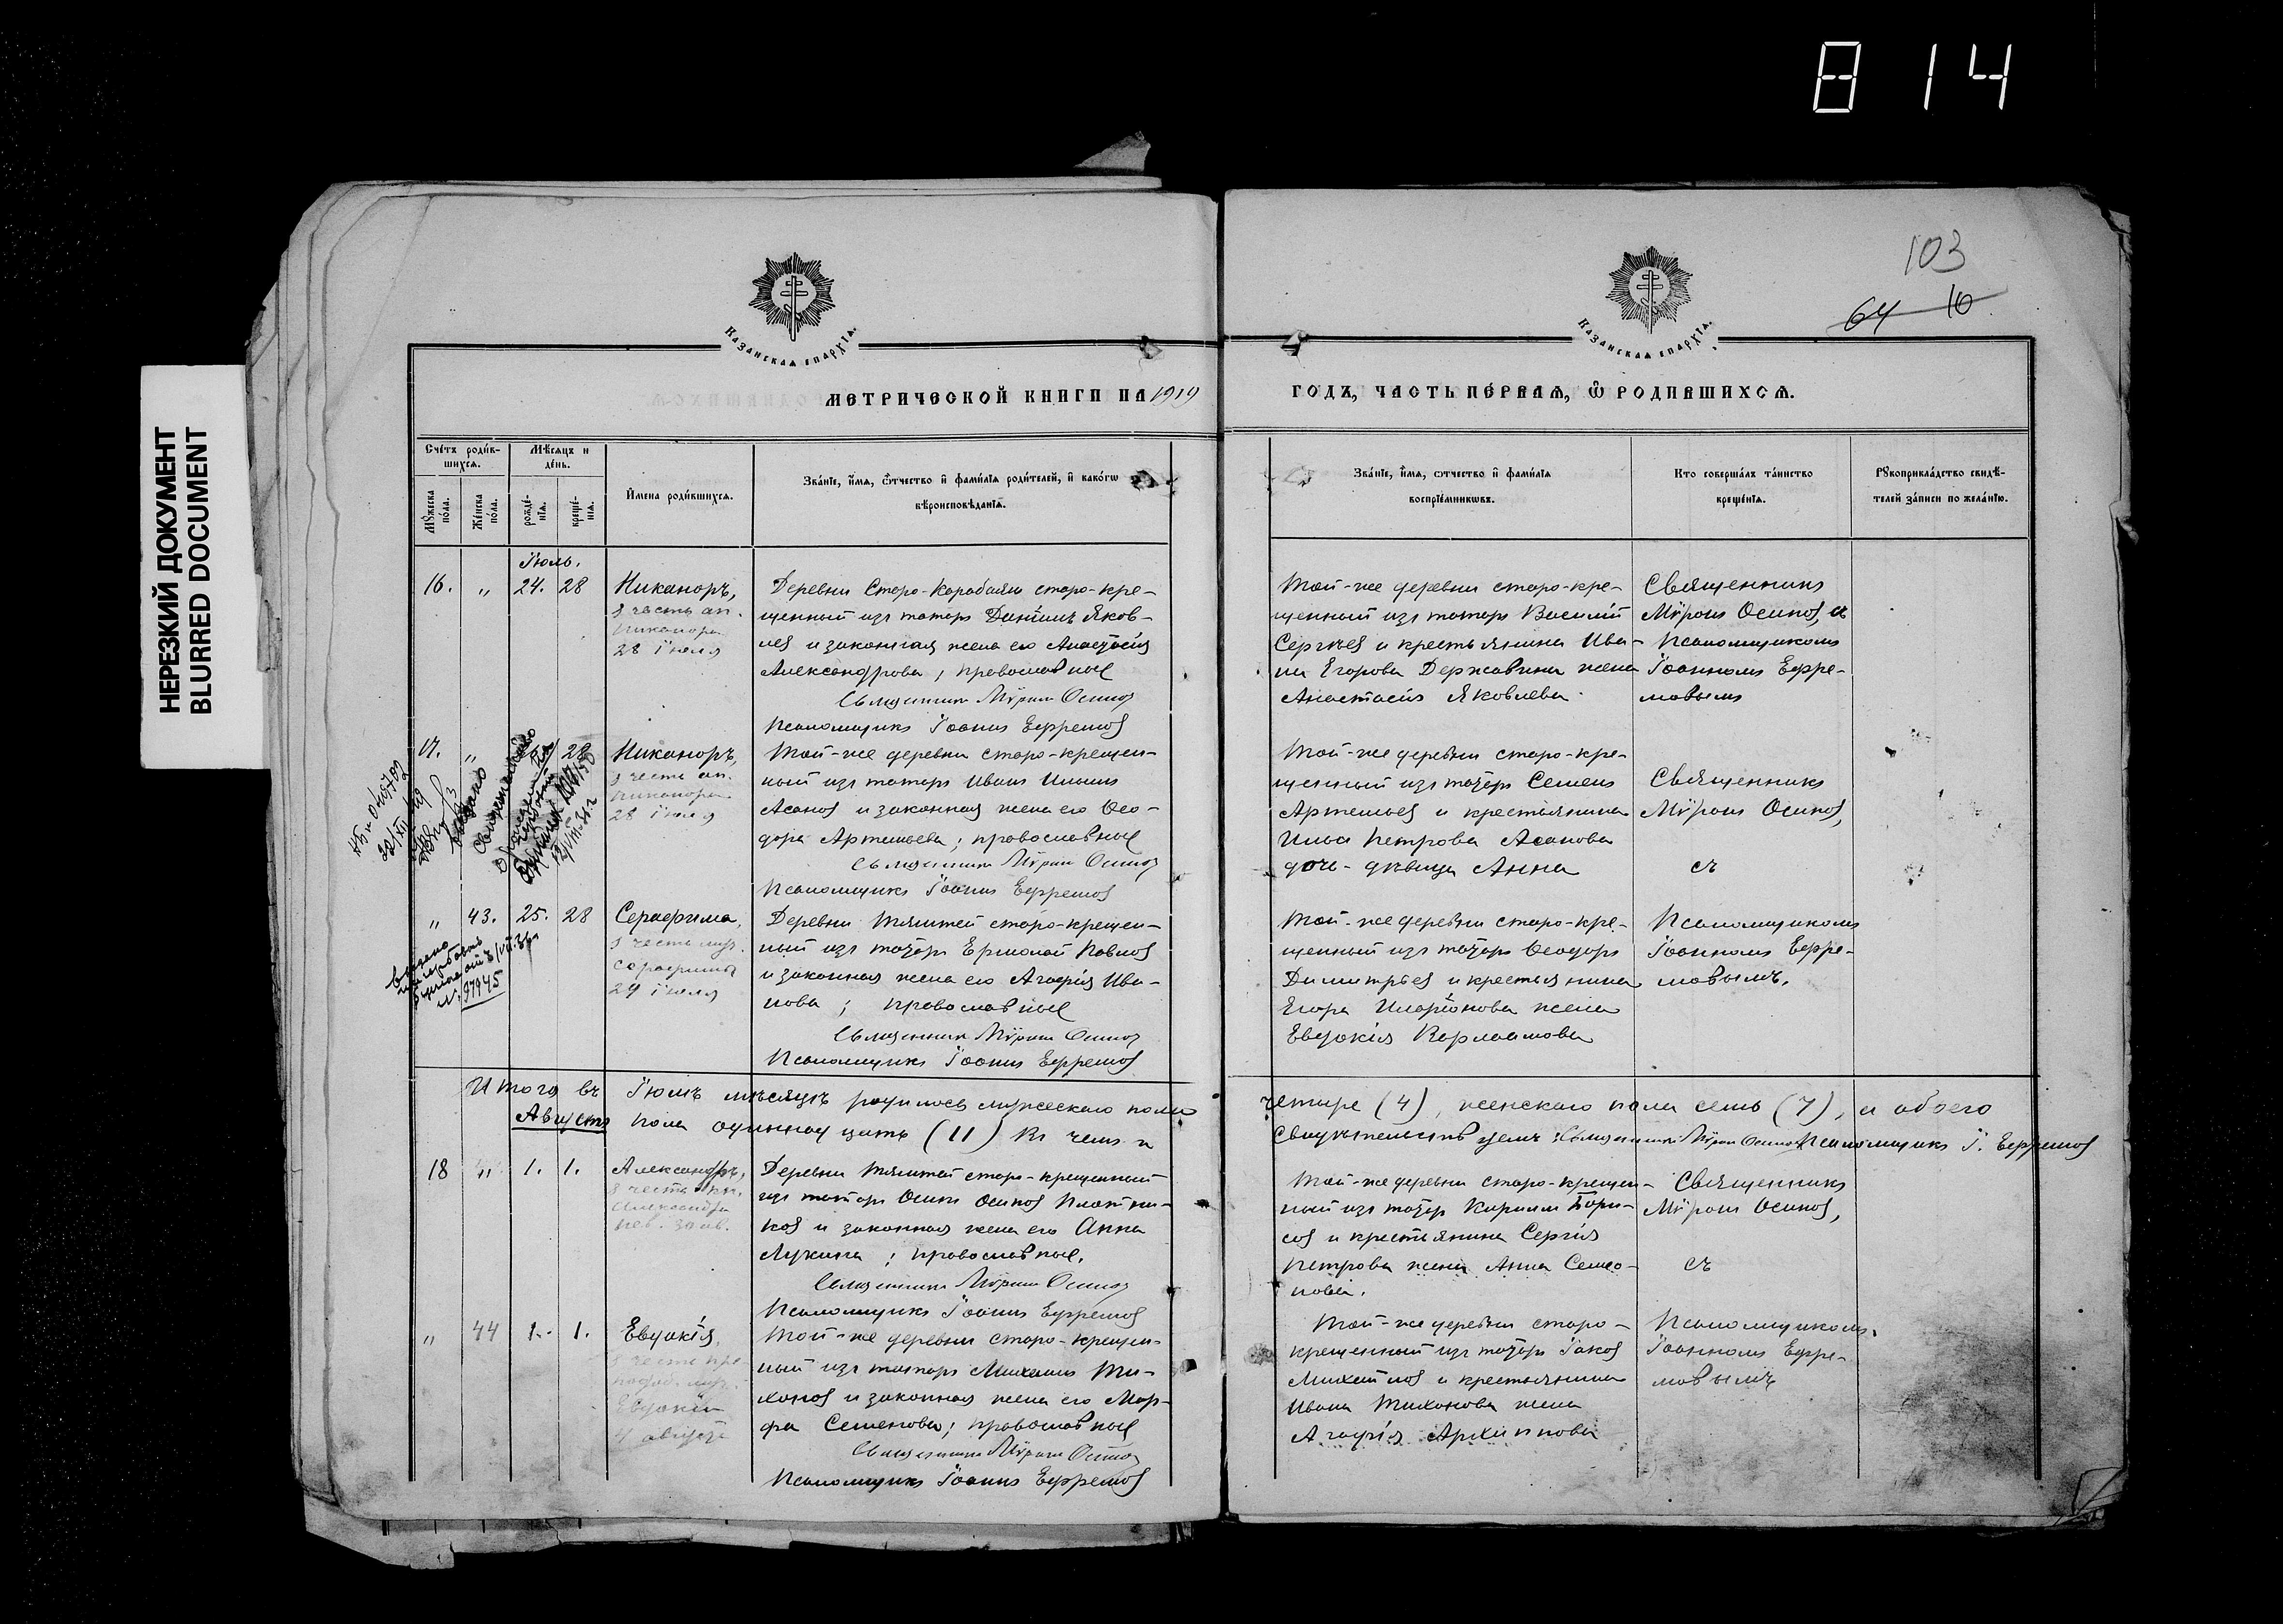 814
НЕРЕЗКИЙ ДОКУМЕНТ
BLURRED DOCUMENT
103
64 10
Казанская епархїѧ.
Казанская епархїѧ.
МЕТРИЧЕСКОЙ КНИГИ НА 1919
ГОДЪ, ЧАСТЬ ПЕ́РВАѦ, Ѿ РОДИВШИХСѦ.
Сче́тъ роди́в-
шихсѧ.
Мѣ́сѧцъ и
де́нь.
Мꙋ́жеска
по́ла.
Же́нска
по́ла.
рожде́-
нїѧ.
креще́-
нїѧ.
И҆мена роди́вшихсѧ.
Зва́нїе, и҆́мѧ, ѻ҆́тчество и҆ фами́лїѧ роди́телей, и҆ како́гѡ
вѣроисповѣ́данїѧ.
Зва́нїе, и҆́мѧ, ѻтчество и҆ фами́лїѧ
воспрїе́мникѡвъ.
Кто соверша́лъ та́инство
креще́нїѧ.
Рꙋкоприкла́дство свидѣ́-
телей за́писи по жела́нїю.
Іюль.
16. „ 24. 28 Никаноръ,
в честь ап.
Никанора
28 іюля
Деревни Старо-Карабаяни старо-кре-
щенный изъ татаръ Даніилъ Яков-
левъ и законная жена его Анастасія
Александрова; православные
Священникъ Мѵронъ Осиповъ
Псаломщикъ Іоаннъ Ефремовъ
Той-же деревни старо-кре-
щенный изъ татаръ Василій
Сергѣевъ и крестьянина Ива-
на Егорова Державина жена
Анастасія Яковлева.
Священникъ
Мѵронъ Осиповъ, съ
Псаломщикомъ
Іоанномъ Ефре-
мовымъ
17. „ 28 Никаноръ,
в честь ап.
Никанора
28 іюля
Той-же деревни старо-крещен-
ный изъ татаръ Иванъ Ильинъ
Асановъ и законная жена его Ѳео-
дора Артемьева; православные
Священникъ Мѵронъ Осиповъ
Псаломщикъ Іоаннъ Ефремовъ
Той-же деревни старо-кре-
щенный изъ татаръ Семенъ
Артемьевъ и крестьянина
Ильи Петрова Асанова
дочь-дѣвица Анна
Священникъ
Мѵронъ Осиповъ,
съ
„ 43. 25. 28 Серафима,
в честь муч.
Серафимы
29 іюля
Деревни Тямтей старо-крещен-
ный изъ татаръ Ермолай Павловъ
и законная жена его Агафія Ива-
нова; православные
Священникъ Мѵронъ Осиповъ
Псаломщикъ Іоаннъ Ефремовъ
Той-же деревни старо-кре-
щенный изъ татаръ Ѳеодоръ
Димитріевъ и крестьянина
Егора Иларіонова жена
Евдокія Варлаамова
Псаломщикомъ
Іоанномъ Ефре-
мовымъ.
№ 97945
Итого въ Іюлѣ мѣсяцѣ родилось мужескаго пола четыре (4), женскаго пола семь (7), а обоего
пола одиннадцать (11) въ чемъ и свидѣтельствуемъ: Священникъ Мѵронъ Осиповъ Псаломщикъ І. Ефремовъ
Августъ
18 „ 1. 1. Александръ,
в честь кн.
Александра
Нев.
Деревни Тямтей старо-крещенный
изъ татаръ Осипъ Осиповъ Плотни-
ковъ и законная жена его Анна
Лукина; православные.
Священникъ Мѵронъ Осиповъ
Псаломщикъ Іоаннъ Ефремовъ
Той-же деревни старо-крещен-
ный изъ татаръ Кириллъ Бори-
совъ и крестьянина Сергія
Петрова жена Анна Семео-
нова.
Священникъ
Мѵронъ Осиповъ,
съ
„ 44 1. 1. Евдокія,
в честь пре-
подоб. муч.
Евдокіи
4 августа
Той-же деревни старо-крещен-
ный изъ татаръ Михаилъ Ти-
хоновъ и законная жена его Мар-
фа Семенова; православные
Священникъ Мѵронъ Осиповъ
Псаломщикъ Іоаннъ Ефремовъ
Той-же деревни старо-
крещенный изъ татаръ Іаковъ
Михайловъ и крестьянина
Ивана Тихонова жена
Агафія Архиппова
Псаломщикомъ
Іоанномъ Ефре-
мовымъ